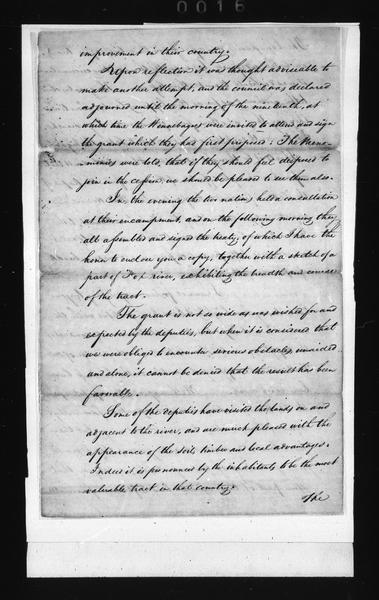 0016
improvement in their country.
Upon reflection it was thought adviseable to
make another attempt, and the council was declared
adjourned until the morning of the nineteenth, at
which time the Winnebagoes were invited to attend and sign
the grant which they had first proposed: The Meno-
monies were told, that if they should feel disposed to
join in the cession, we should be pleased to see them also.
In the evening the two nations held a consultation
at their encampment, and on the following morning they
all assembled and signed the treaty, of which I have the
honor to enclose you a copy, together with a sketch of a
part of Fox river, exhibiting the breadth and course
of the tract.
The grant is not so wide as was wished for and
expected by the deputies, but when it is considered that
we were obliged to encounter serious obstacles, unaided
and alone, it cannot be denied that the result has been
favorable.
Some of the deputies have visited the lands on and
adjacent to the river, and are much pleased with the
appearance of the soil, timber and local advantages.
Indeed it is pronounced by the inhabitants to be the most
valuable tract in that country.
The